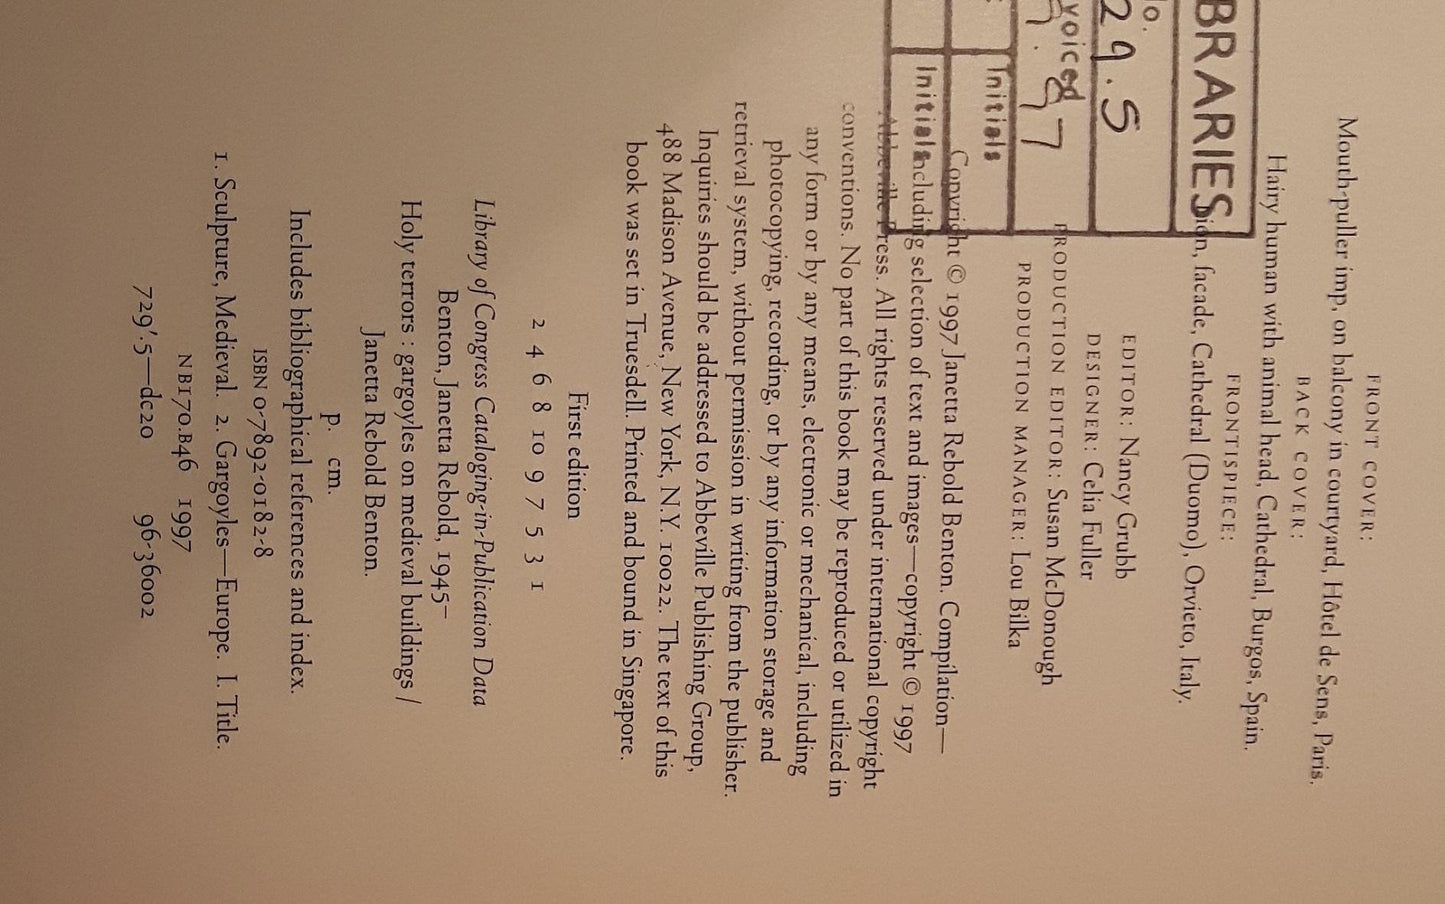 BRARIES
o.
29.5
voiced
97
Initials
Initials
FRONT COVER:
Mouth-puller imp, on balcony in courtyard, Hôtel de Sens, Paris.
BACK COVER:
Hairy human with animal head, Cathedral, Burgos, Spain.
FRONTISPIECE:
facade, Cathedral (Duomo), Orvieto, Italy.
EDITOR: Nancy Grubb
DESIGNER: Celia Fuller
PRODUCTION EDITOR: Susan McDonough
PRODUCTION MANAGER: Lou Bilka
Copyright © 1997 Janetta Rebold Benton. Compilation—
including selection of text and images—copyright © 1997
Abbeville Press. All rights reserved under international copyright
conventions. No part of this book may be reproduced or utilized in
any form or by any means, electronic or mechanical, including
photocopying, recording, or by any information storage and
retrieval system, without permission in writing from the publisher.
Inquiries should be addressed to Abbeville Publishing Group,
488 Madison Avenue, New York, N.Y. 10022. The text of this
book was set in Truesdell. Printed and bound in Singapore.
First edition
2 4 6 8 10 9 7 5 3 1
Library of Congress Cataloging-in-Publication Data
Benton, Janetta Rebold, 1945–
Holy terrors : gargoyles on medieval buildings /
Janetta Rebold Benton.
p. cm.
Includes bibliographical references and index.
ISBN 0-7892-0182-8
1. Sculpture, Medieval. 2. Gargoyles—Europe. I. Title.
NB170.B46 1997
729'.5—dc20 96-36002